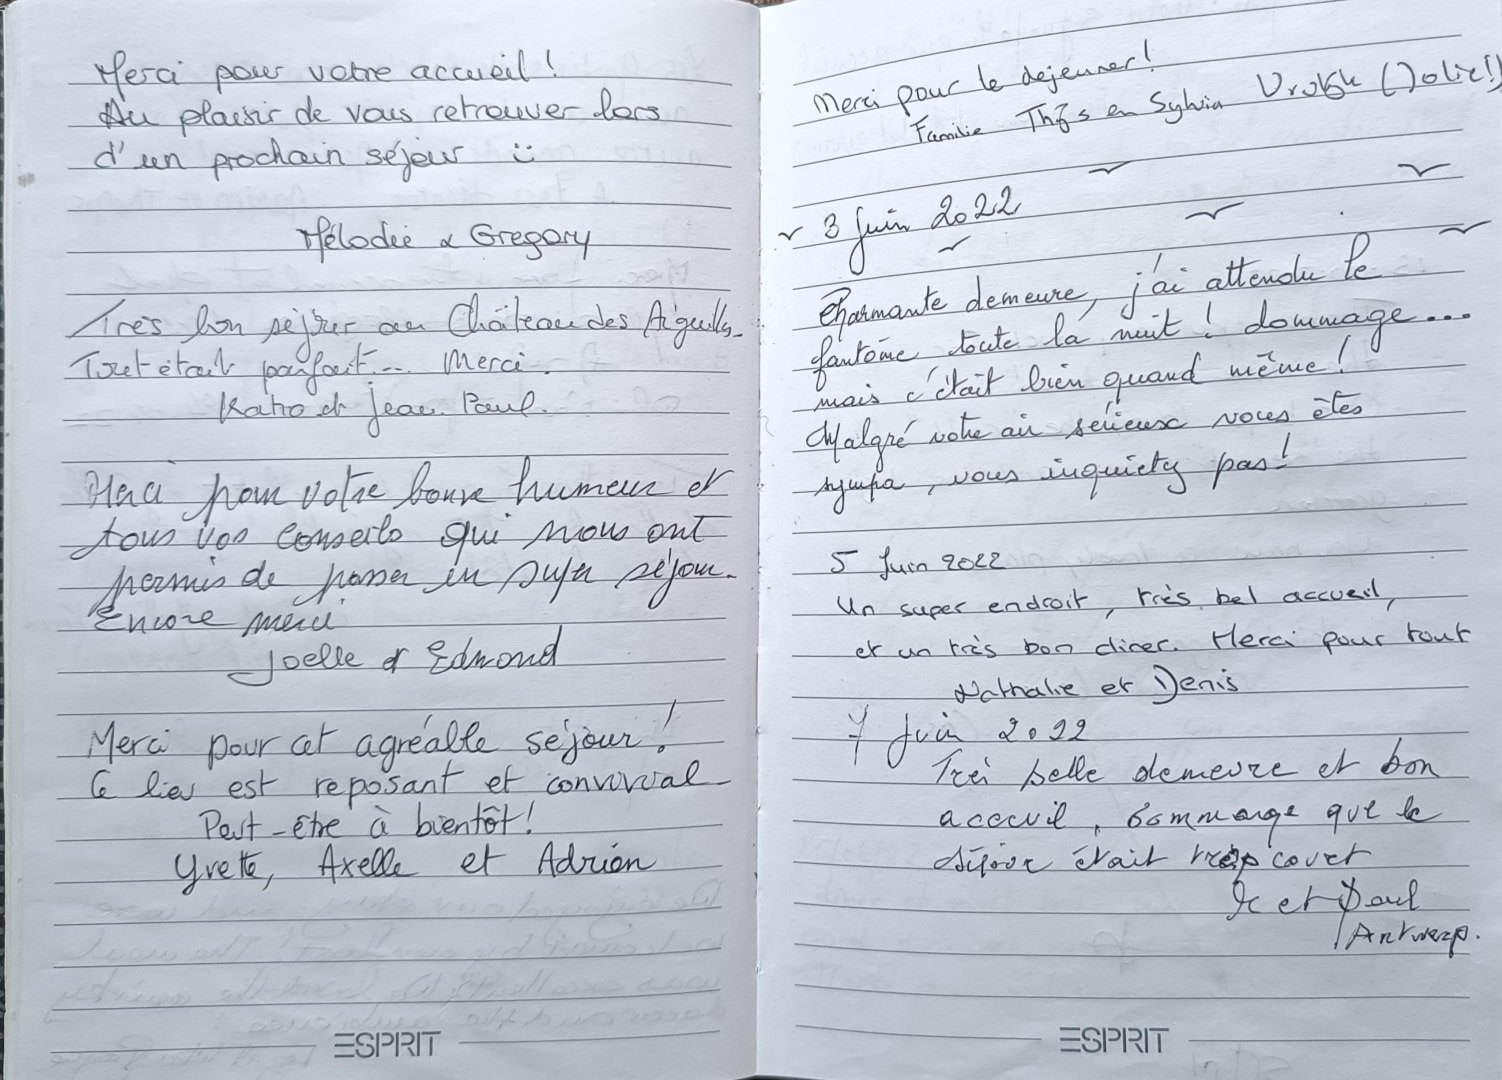 Merci pour votre accueil !
Au plaisir de vous retrouver lors
d'un prochain séjour
Mélodie & Gregory
Très bon séjour au Château des Aiguills
Tout était parfait... Merci.
et Jean Paul.
Merci pour votre bonne humeur et
tous vos conseils qui nous ont
permis de passer un super séjour.
Encore merci
Joelle et Edmond
Merci pour cet agréable séjour !
Ce lieu est reposant et convivial
Peut-être à bientôt !
Yvette, Axelle et Adrien
ESPRIT
Merci pour le dejeuner !
Familie Thijs en Sylvia
3 Juin 2022
Charmante demeure, j'ai attendu le
fantôme toute la nuit ! dommage...
mais c'était bien quand même !
Malgré votre air sérieux vous êtes
sympa, vous inquietez pas !
5 Juin 2022
Un super endroit, très bel accueil,
et un très bon diner. Merci pour tout
Nathalie et Denis
7 Juin 2022
Trei belle demeure et bon
accouil, dommage que le
était trop court
et Paul
Antwerp.
ESPRIT